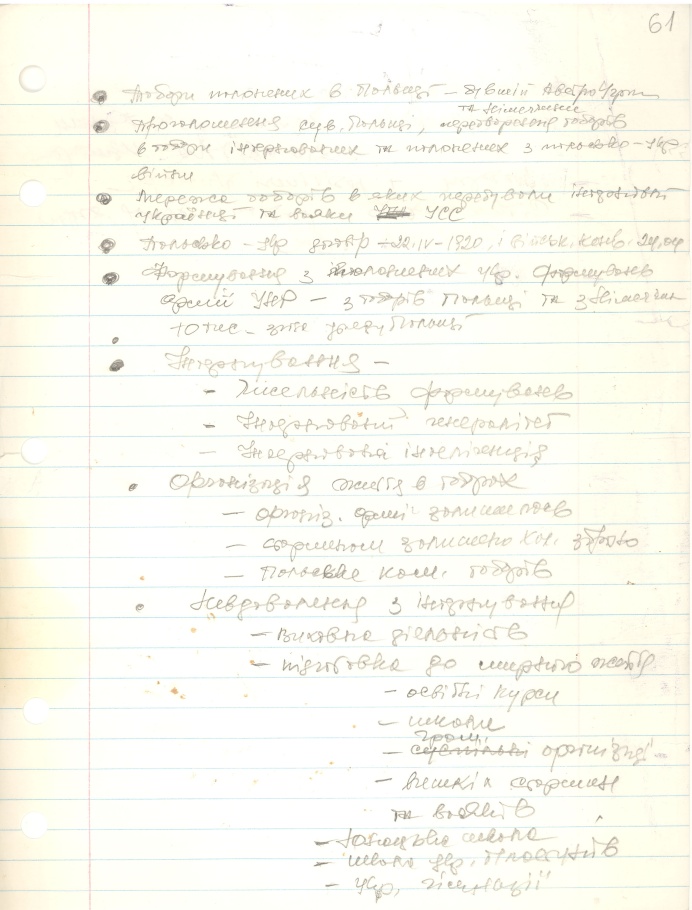 61
● Табори полонених в Польщі – бувшій Австро Угрш
та Німеччині
● Проголошення сув. Польщі, перетворення таборів
в табори інтернованих та полонених з польсько-укр
війни
● Мережа таборів в яких перебували інтерновані
українці та вояки УСС
● Польсько-Укр договір – 22.IV-1920, і військ. конв. 24.04
● Формування з полонених укр. формувань
армії УНР – з таборів Польщі та з Німеччини
уряду Польщі
● Інтернування –
– Чисельність формувань
– Інтерновані генераліт
– Інтернована інтелігенція
● Організація життя в таборах
– організ. армії залишилась
– старшинам залишено хол. зброю
– Польське ком. таборів
● Невдоволення з інтернування
– Виховна діяльність
– підготовка до мирного життя
– освітні курси
– школи
гром.
– суспільні організації
– вишкіл старшин
та вояків
– Юнацька школа
– школа укр.
– Укр.